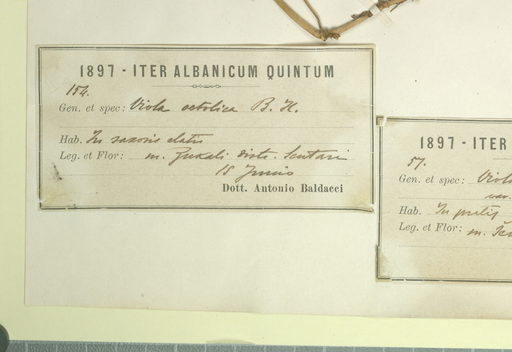 1897 - ITER ALBANICUM QUINTUM
154.
Gen. et spec: Viola aetolica B. H.
Hab. In saxosis elatis
Leg. et Flor: m. Zukali distr. Scutari
15 Junio
Dott. Antonio Baldacci
1897 - ITER
57.
Gen. et spec: Viola
var.
Hab. In
Leg. et Flor: m.